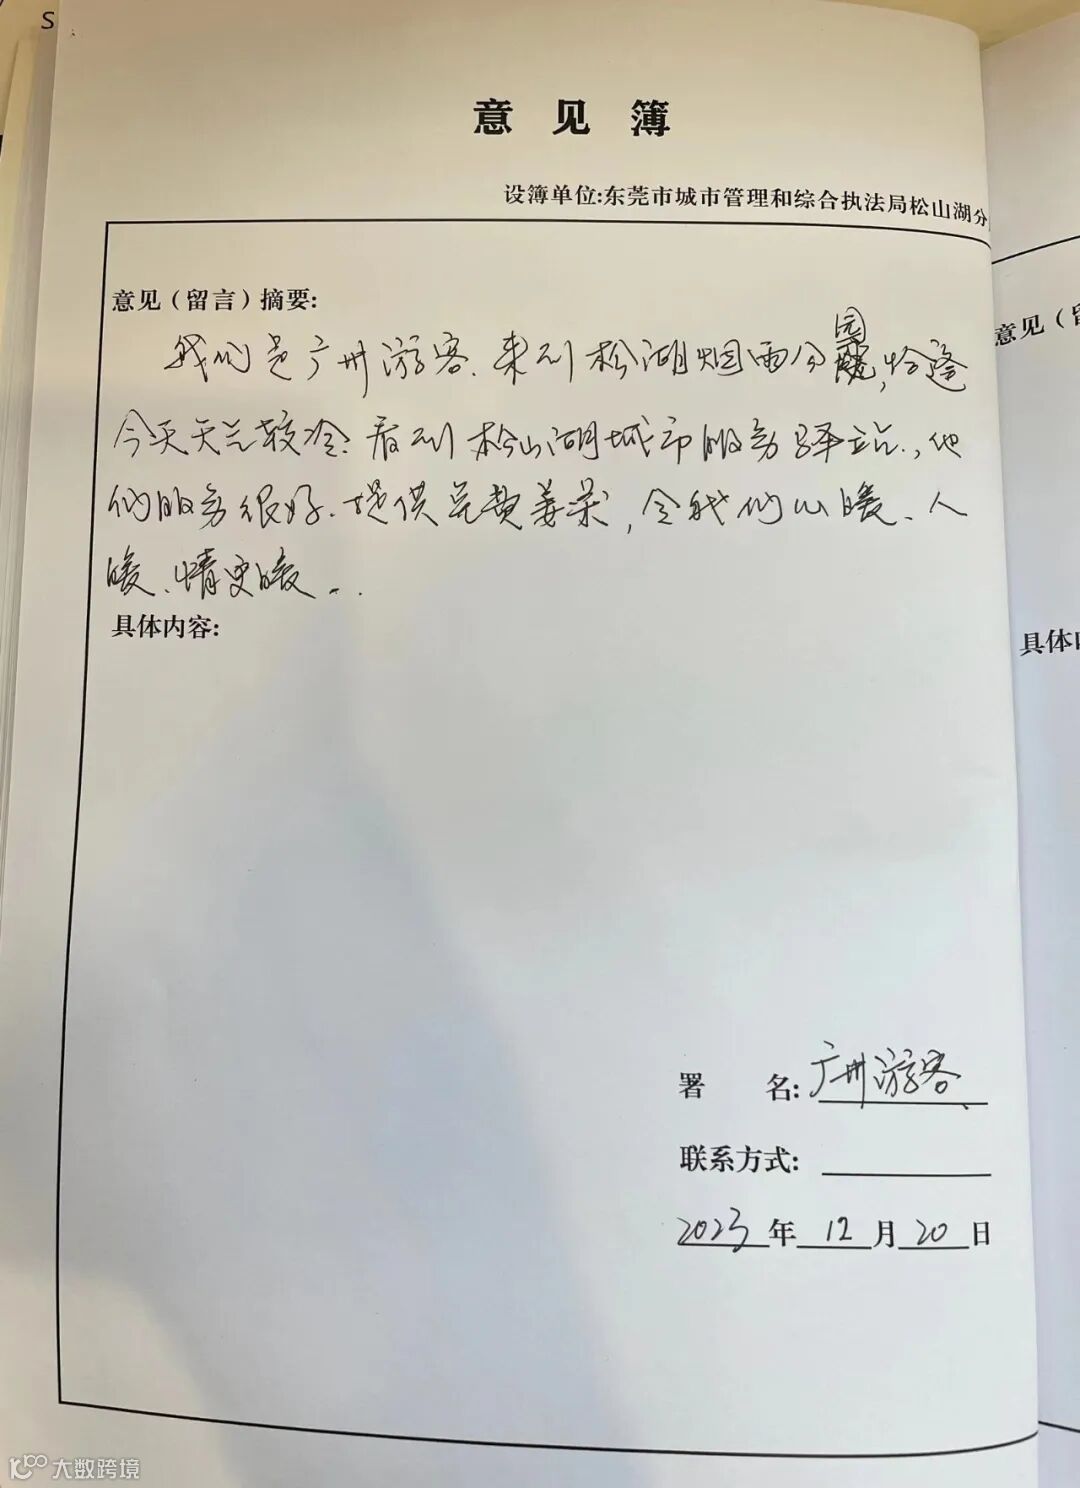 S
意见簿
设簿单位:东莞市城市管理和综合执法局松山湖分
意见（留言）摘要:
我们是广州游客、来到松湖烟雨分园,恰逢
今天天气较冷、看到松山湖城市服务驿站,他
们服务很好、提供免费姜茶,令我们心暖、人
暖、情更暖..
具体内容:
署 名:广州游客
联系方式:
2023年12月20日
意见（
具体
大数跨境